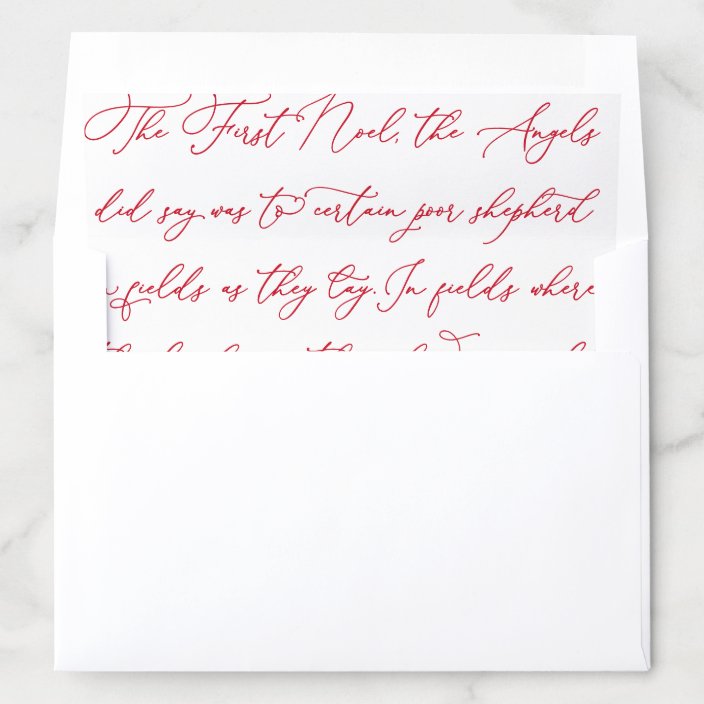 The First Noel, the Angels
did say was to certain poor shepherd
fields as they lay. In fields where